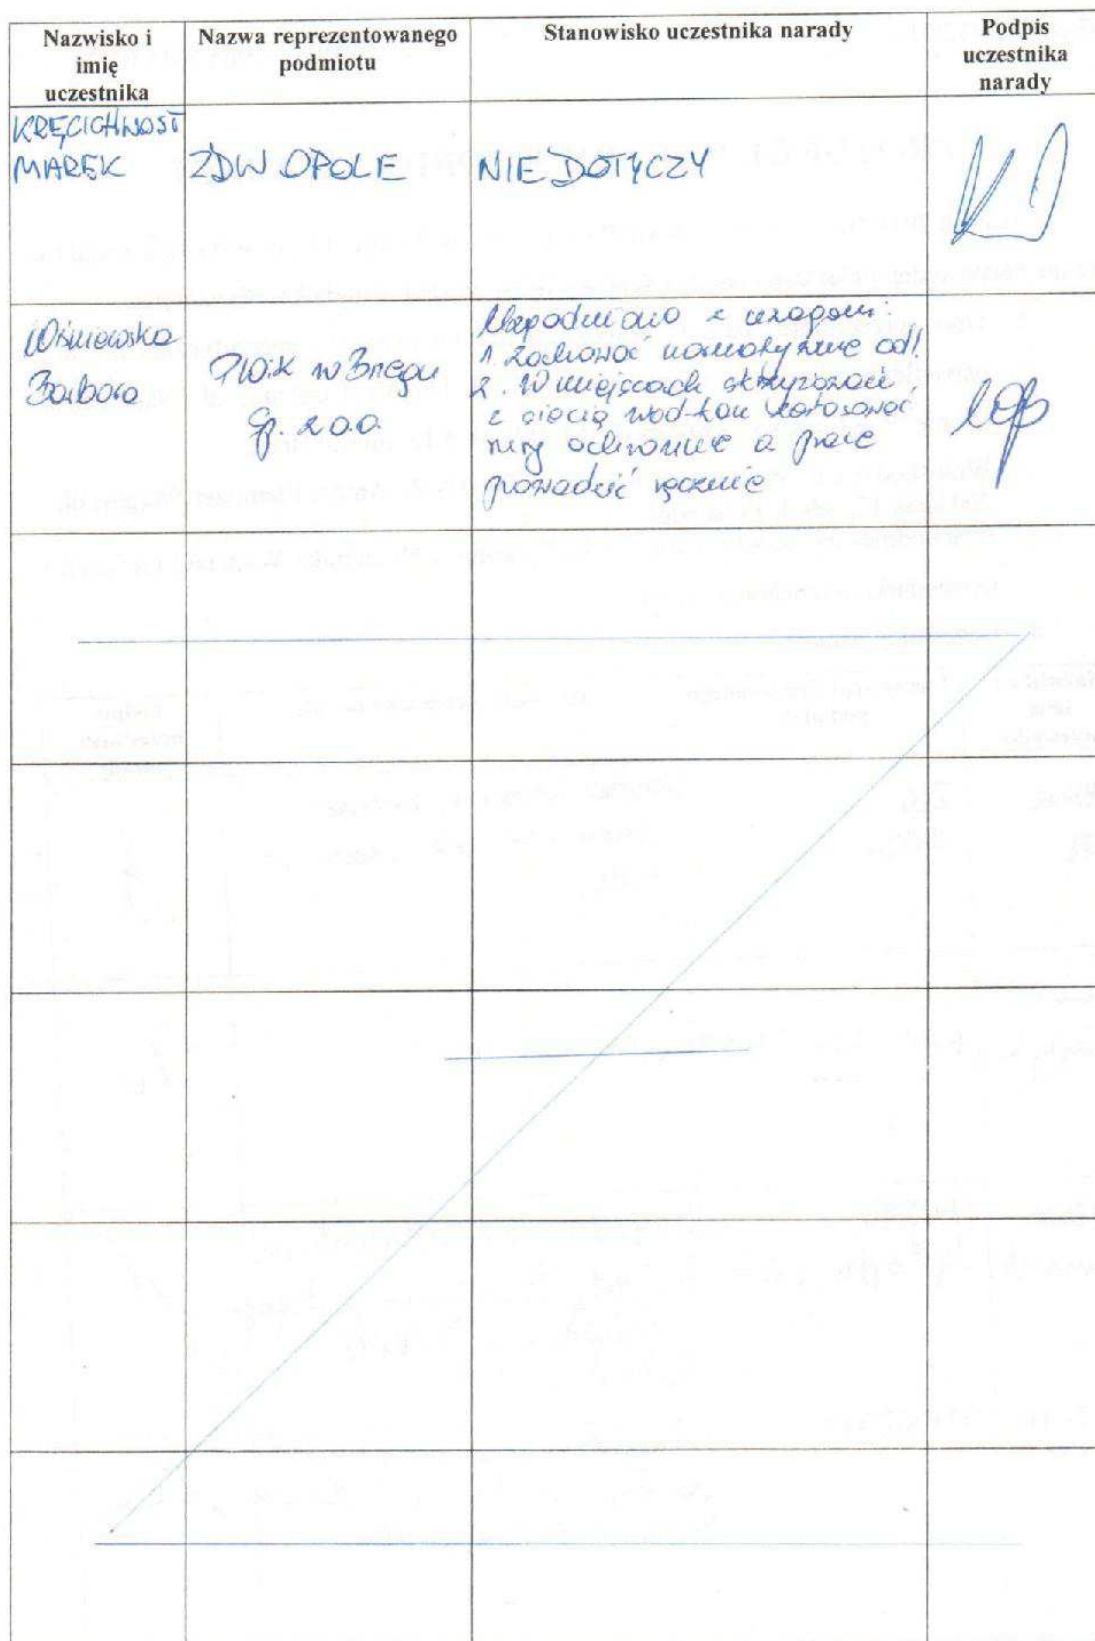 Nazwisko i
imię
uczestnika
Nazwa reprezentowanego
podmiotu
Stanowisko uczestnika narady
Podpis
uczestnika
narady
MAREK
ZDW OPOLE
NIE DOTYCZY
Wiśniewska
Barbara
PWiK w Brzegu
Sp. z o.o.
Uzgodniono z uwagami:
1. Zachować normatywne odl.
2. W miejscach skrzyżowań
z siecią wod-kan zastosować
rury ochronne a prace
prowadzić ręcznie